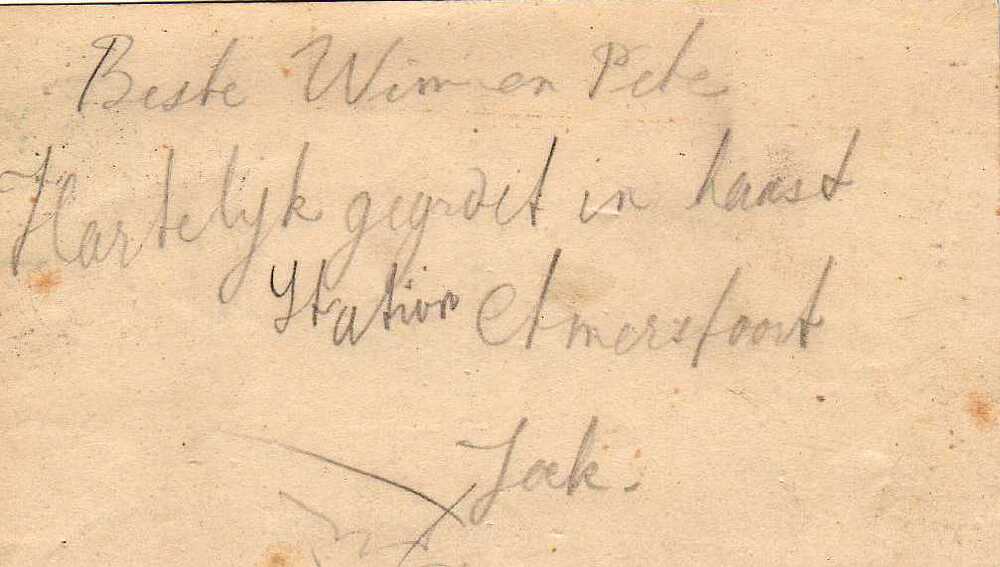 Beste Wim en Pete
Hartelyk gegroet in haast
Station Amersfoort
Jack.